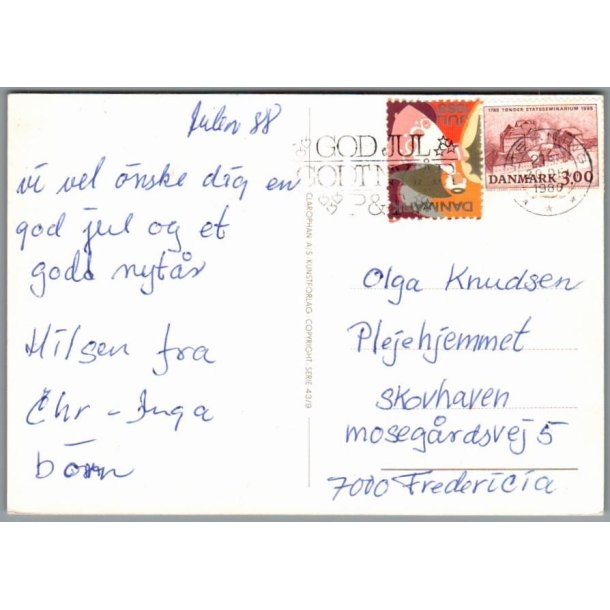 Julen 88
vi vel önske dig en
god jul og et
godt nytår
Hilsen fra
Chr - Inga
börn
CLAROPHAN A/S KUNSTFORLAG COPYRIGHT SERIE 43/9
GOD JUL
GODT N
P&
JUL
DANMARK
1788 TØNDER STATSSEMINARIUM 1988
DANMARK 3.00
Olga Knudsen
Plejehjemmet
skovhaven
mosegårdsvej 5
7000 Fredericia